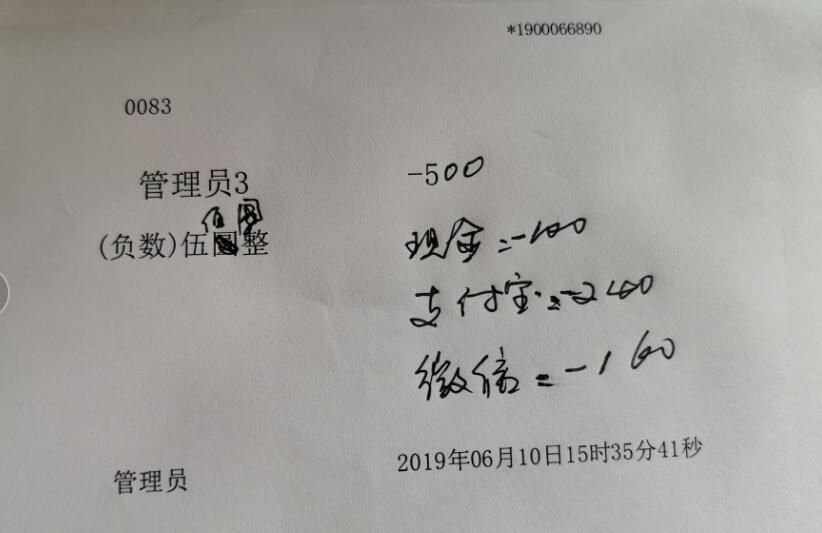 *1900066890
0083
管理员3
-500
佰圆
(负数)伍整
现金=-100
支付宝=-240
微信=-160
管理员
2019年06月10日15时35分41秒